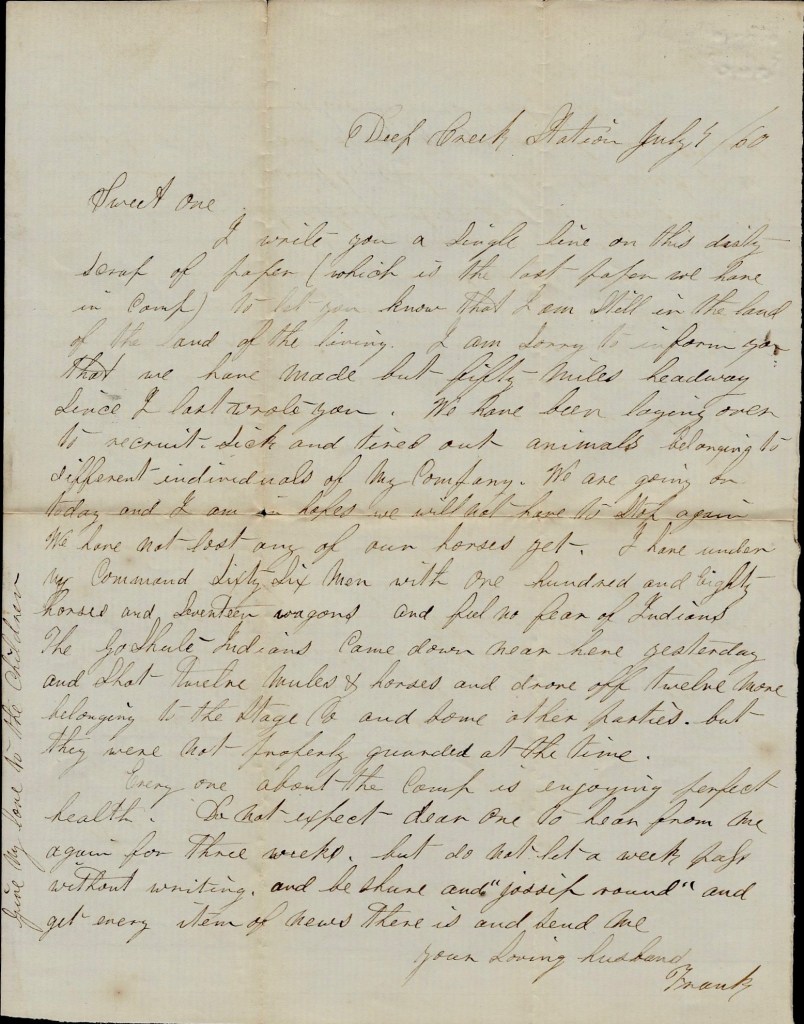 Deep Creek Station July 9/60
Sweet One
I write you a single line on this dirty
scrap of paper (which is the last paper we have
in Camp) to let you know that I am still in the land
of the land of the living. I am sorry to inform you
that we have made but fifty miles headway
since I last wrote you. We have been laying over
to recruit sick and tired out animals belonging to
different individuals of my Company. We are going on
today and I am in hopes we will not have to stop again
We have not lost any of our horses yet. I have under
my Command Sixty Six men with one hundred and Eighty
horses and Seventeen wagons and feel no fear of Indians
The GoShute Indians came down near here yesterday
and shot twelve mules & horses and drove off twelve more
belonging to the Stage Co and some other parties. but
they were not properly guarded at the time.
Every one about the Camp is enjoying perfect
health. Do not expect dear one to hear from me
again for three weeks. but do not let a week pass
without writing. and be shure and "jossip round" and
get every item of news there is and send me
your Loving husband
Frank
Give my love to the Children